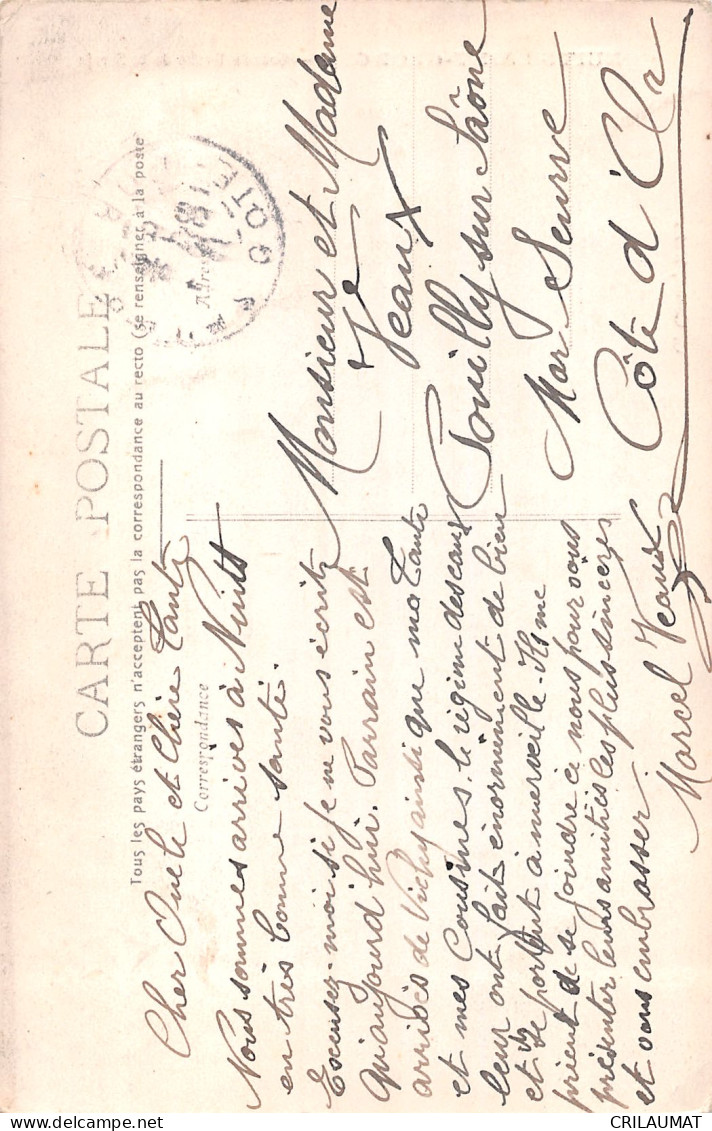 CARTE POSTALE
Tous les pays étrangers n'acceptent pas la correspondance au recto (se renseigner à la poste
Correspondance
Adresse
Cher Oncle et Chère Tante
Nous sommes arrivés à Nuits
en très bonne santé.
Excusez-moi si je ne vous écrit
qu'aujourd'hui. Parrain est
arrivés de Vichy ainsi que ma tante
et mes cousines. le régime des eaux
leur ont fait énormément de bien
et se portent à merveille. Ils me
prient de se joindre à nous pour vous
présenter leurs amitiés les plus sincères
et vous embrasser
Marcel Jeaux
Monsieur et Madame
Jeaux
Pouilly sur Saône
Par Seurre
Côte d'Or
CRILAUMAT